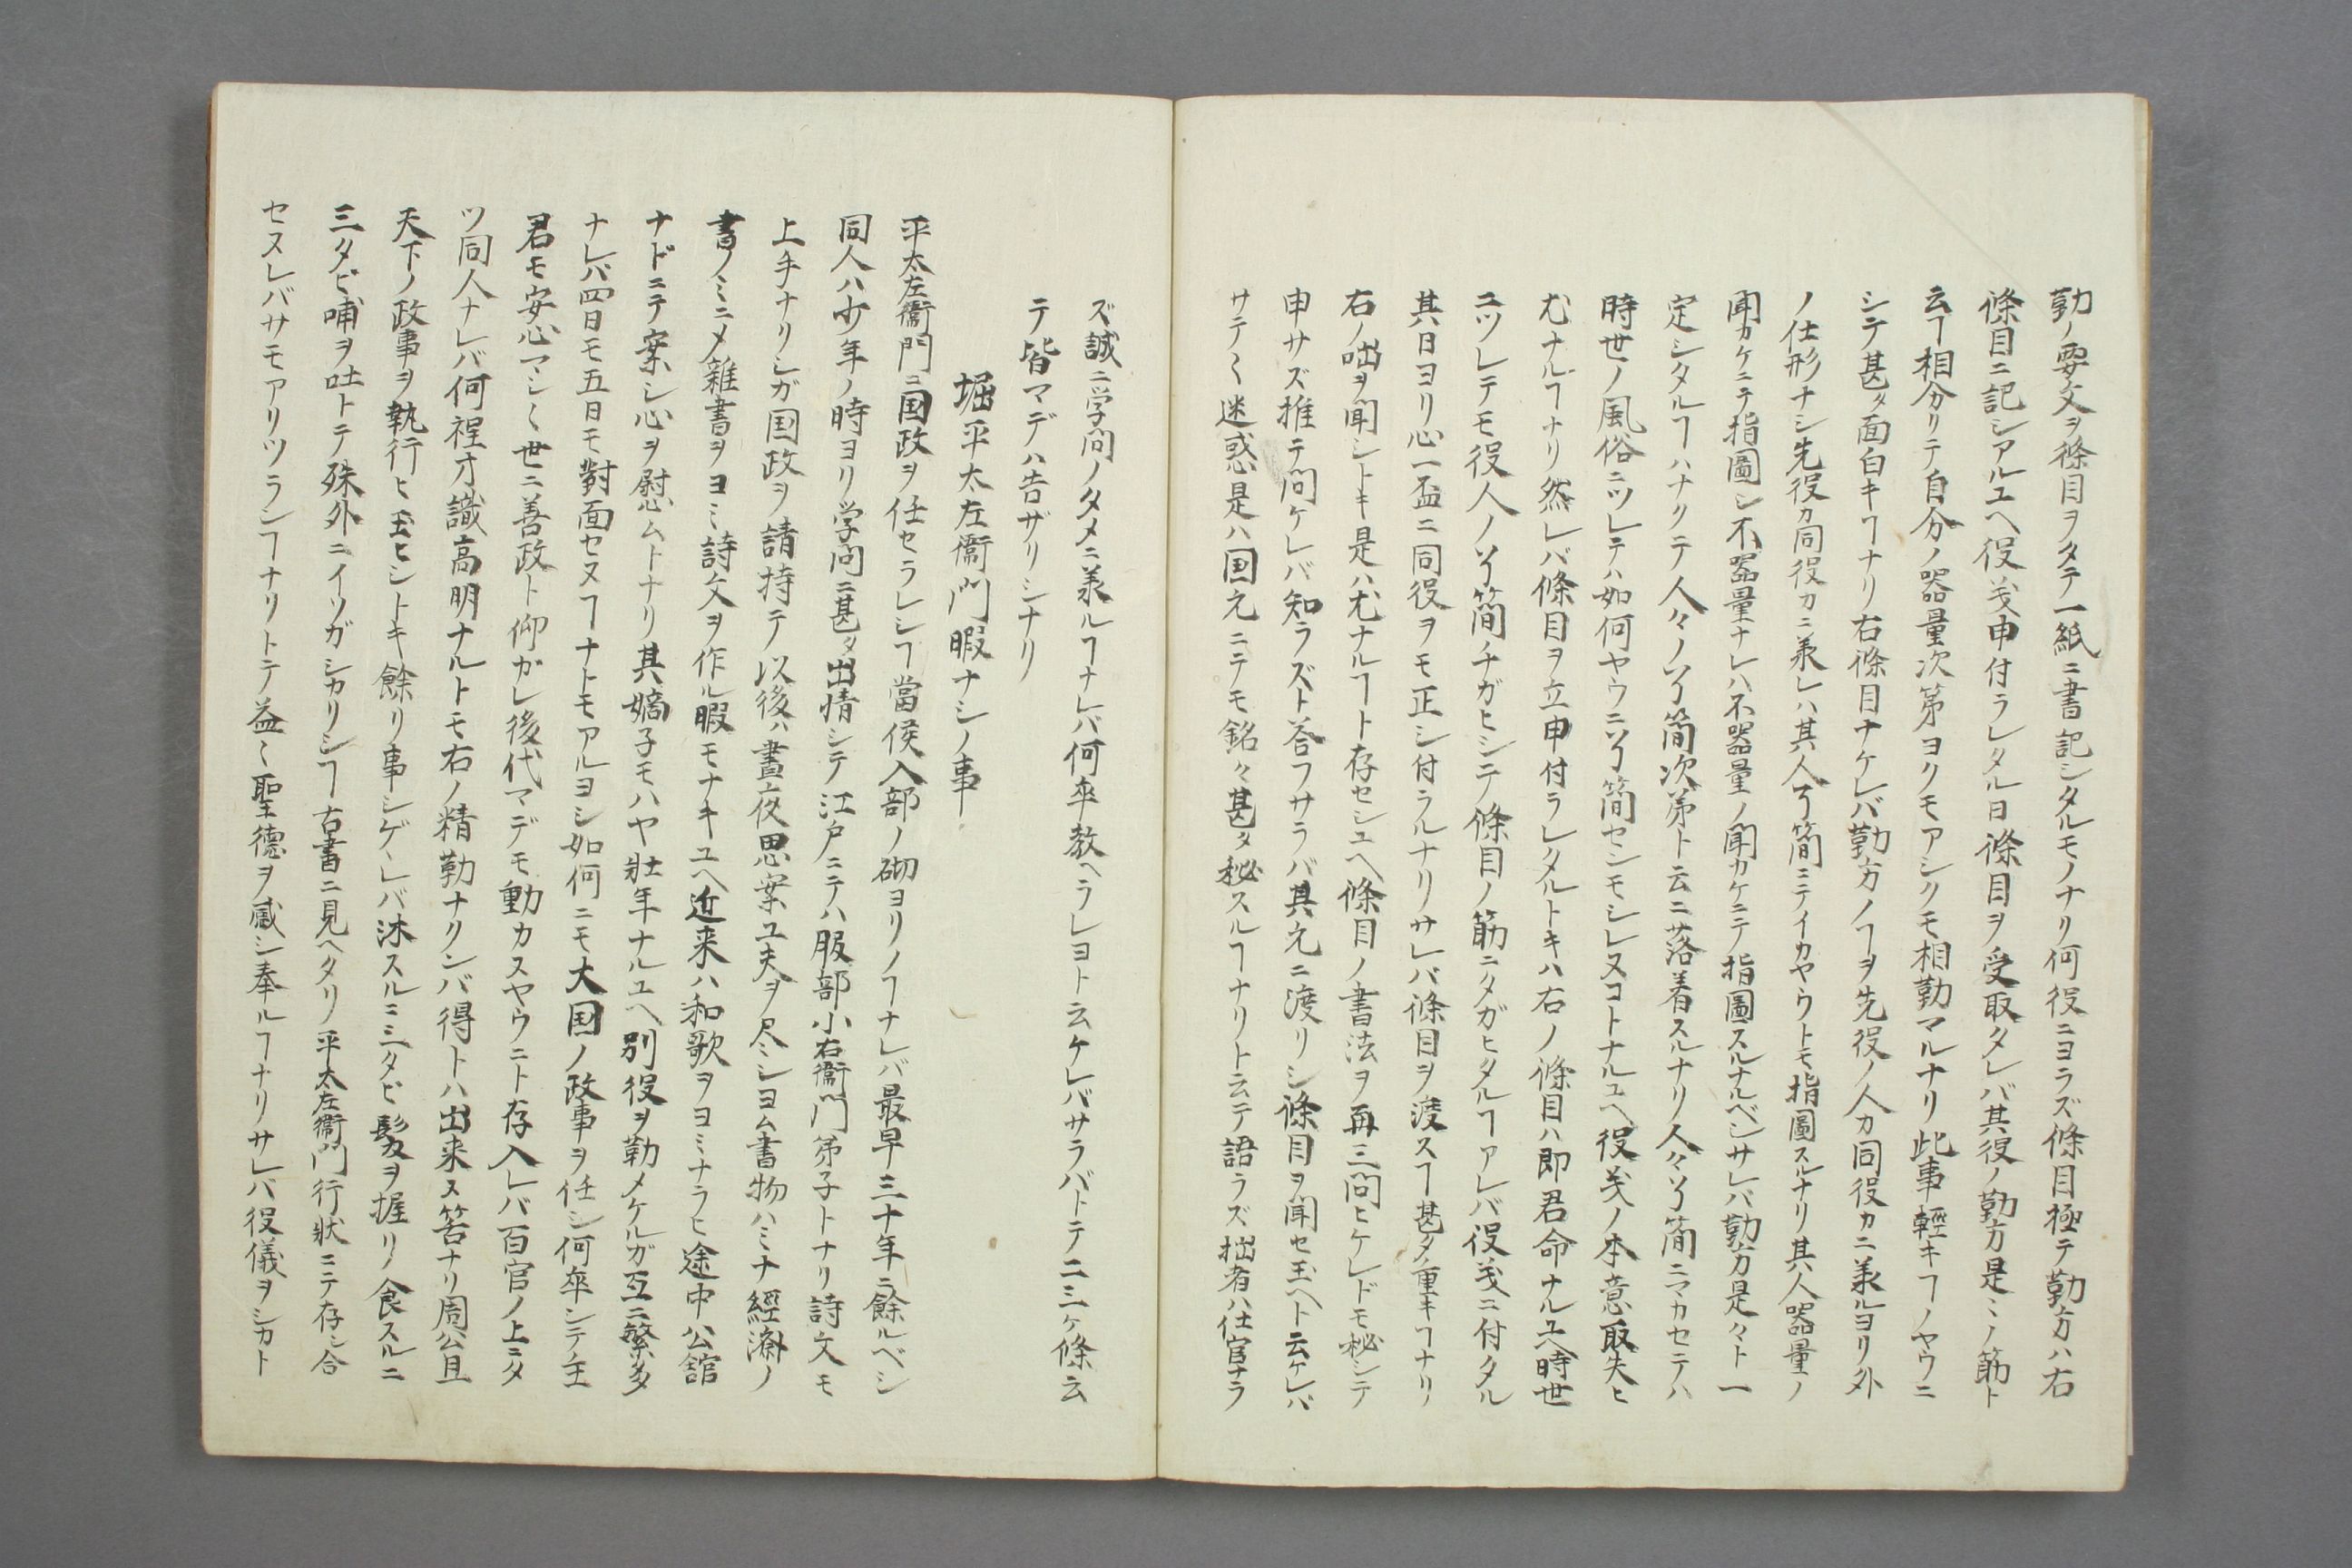 勤ノ要文ヲ條目ヲタテ一紙ニ書記シタルモノナリ何役ニヨラズ條目極テ勤方ハ右
條目ニ記シアルユヘ役義申付ラレタル日條目ヲ受取タレバ其役ノ勤方是〻ノ筋ト
云ヿ相分リテ自分ノ器量次第ヨクモアシクモ相勤マルナリ此事輕キヿノヤウニ
シテ甚タ面白キヿナリ右條目ナケレバ勤方ノヿヲ先役ノ人カ同役カニ羕ルヨリ外
ノ仕形ナシ先役カ同役カニ羕レハ其人了簡ニテイカヤウトモ指圖スルナリ其人器量ノ
聞カケニテ指圖シ不器量ナレハ不器量ノ聞カケニテ指圖スルナルベシサレバ勤方是々ト一
定シタルヿハナクテ人々ノ了簡次第ト云ニ落着スルナリ人々了簡ニマカセテハ
時世ノ風俗ニツレテハ如何ヤウニ了簡セシモシレヌコトナルユヘ役義ノ本意取失ヒ
尤ナルヿナリ然レバ條目ヲ立申付ラレタルトキハ右ノ條目ハ即君命ナルユヘ時世
ニツレテモ役人ノ了簡チガヒシテ條目ノ筋ニタガヒタルヿアレバ役義ニ付タル
其日ヨリ心一盃ニ同役ヲモ正シ付ラルナリサレバ條目ヲ渡スヿ甚タ重キヿナリ
右ノ咄ヲ聞シトキ是ハ尤ナルヿト存セシユヘ條目ノ書法ヲ再三問ヒケレドモ秘シテ
申サズ推テ問ケレバ知ラズト答フサラバ其元ニ渡リシ條目ヲ聞セ玉ヘト云ケレバ
サテ〱迷惑是ハ国元ニテモ銘々甚タ秘スルヿナリト云テ語ラズ拙者ハ仕官ナラ
ズ誠ニ学問ノタメニ羕ルヿナレバ何卒教ヘラレヨト云ケレバサラバトテ二三ケ條云
テ皆マデハ告ザリシナリ
堀平太左衞門暇ナシノ事
平太左衞門ニ国政ヲ任セラレシヿ當侯入部ノ砌ヨリノヿナレバ最早三十年ニ餘ルベシ
同人ハ少年ノ時ヨリ学問ニ甚タ出情シテ江戸ニテハ服部小右衞門弟子トナリ詩文モ
上手ナリシガ国政ヲ請持テ以後ハ晝夜思案工夫ヲ尽シヨム書物ハミナ經濟ノ
書ノミニメ雜書ヲヨミ詩文ヲ作ル暇モナキユヘ近来ハ和歌ヲヨミナラヒ途中公舘
ナドニテ案シ心ヲ慰ムトナリ其嫡子モハヤ壯年ナルユヘ別役ヲ勤メケルガ互ニ繁多
ナレバ四日モ五日モ對面セヌヿナトモアルヨシ如何ニモ大国ノ政事ヲ任シ何卒シテ主
君モ安心マシ〱世ニ善政ト仰ガレ後代マデモ動カスヤウニト存入レバ百官ノ上ニタ
ツ同人ナレバ何程才識高明ナルトモ右ノ精勤ナクンバ得トハ出来ヌ筈ナリ周公旦
天下ノ政事ヲ執行ヒ玉ヒシトキ餘リ事シゲヽレバ沐スルニ三タビ髮ヲ握リ食スルニ
三タビ哺ヲ吐トテ殊外ニイソガシカリシヿ古書ニ見ヘタリ平太左衞門行狀ニテ存シ合
セヌレバサモアリツランヿナリトテ益〱聖德ヲ感シ奉ルヿナリサレバ役儀ヲシカト